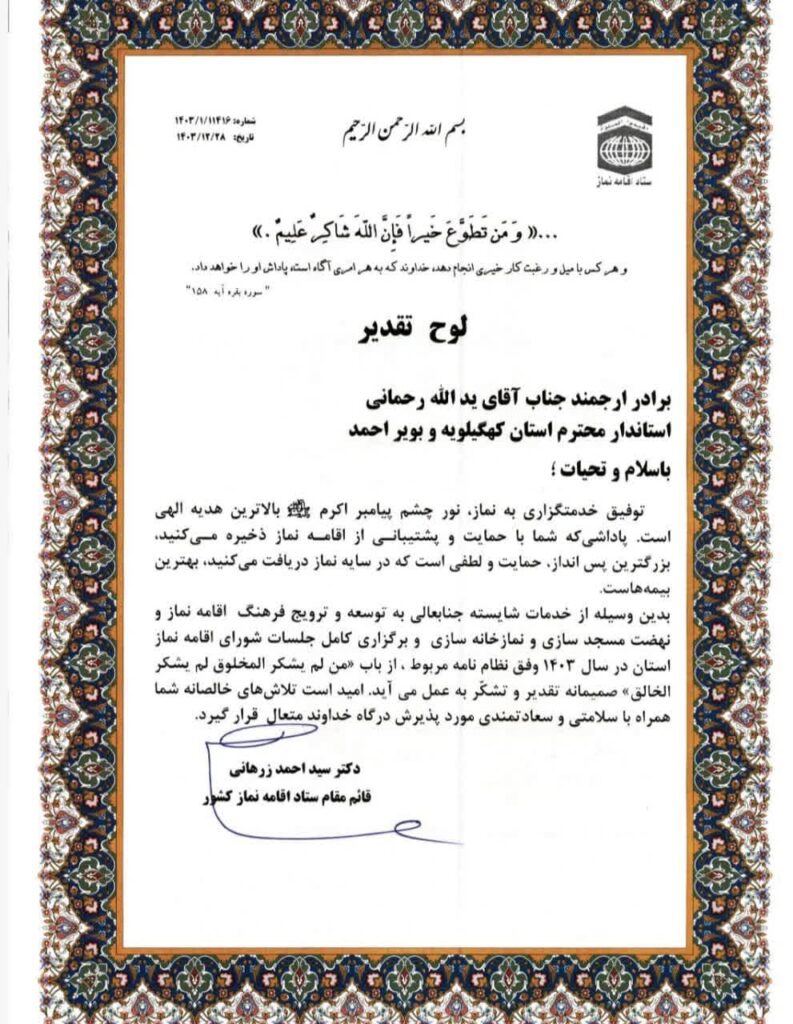 بسم الله الرّحمن الرّحیم
شماره: ۱۴۰۳/۱/۱۱۴۱۶
تاریخ: ۱۴۰۳/۱۲/۲۸
ستاد اقامه نماز
...« وَ مَن تَطَوَّعَ خَیراً فَإِنَّ اللّهَ شَاکِرٌ عَلِیمٌ .»
و هر کس با میل و رغبت کار خیری انجام دهد، خداوند که به هر امری آگاه است، پاداش او را خواهد داد.
" سوره بقره آیه ۱۵۸ "
لوح تقدیر
برادر ارجمند جناب آقای ید الله رحمانی
استاندار محترم استان کهگیلویه و بویر احمد
باسلام و تحیات ؛
توفیق خدمتگزاری به نماز، نور چشم پیامبر اکرم ﷺ بالاترین هدیه الهی
است. پاداشی‌که شما با حمایت و پشتیبانی از اقامه نماز ذخیره می‌کنید،
بزرگترین پس انداز، حمایت و لطفی است که در سایه نماز دریافت می‌کنید، بهترین
بیمه‌هاست.
بدین وسیله از خدمات شایسته جنابعالی به توسعه و ترویج فرهنگ اقامه نماز و
نهضت مسجد سازی و نمازخانه سازی و برگزاری کامل جلسات شورای اقامه نماز
استان در سال ۱۴۰۳ وفق نظام نامه مربوط ، از باب «من لم یشکر المخلوق لم یشکر
الخالق» صمیمانه تقدیر و تشکّر به عمل می آید. امید است تلاش‌های خالصانه شما
همراه با سلامتی و سعادتمندی مورد پذیرش درگاه خداوند متعال قرار گیرد.
دکتر سید احمد زرهانی
قائم مقام ستاد اقامه نماز کشور